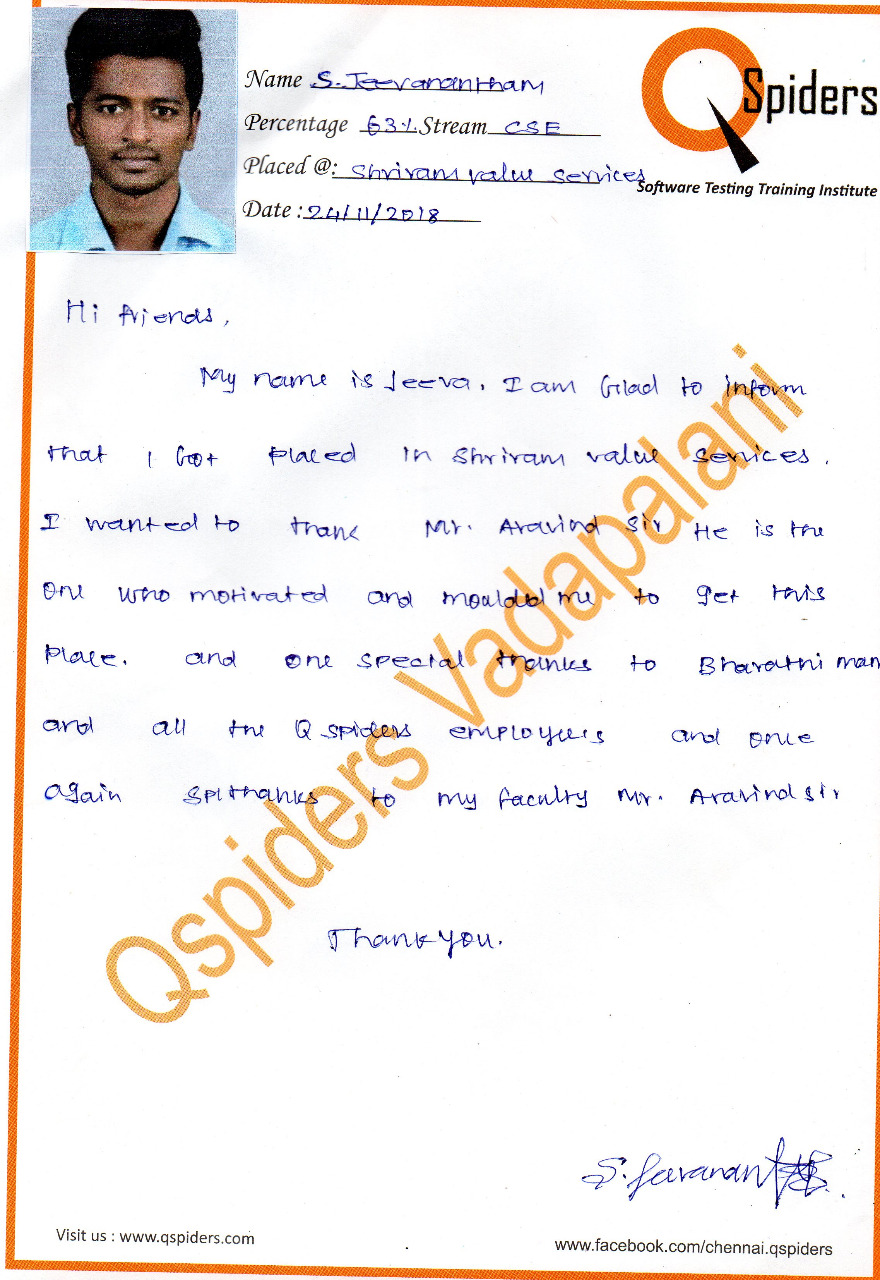 Name S. Jeevanantham
Percentage 63% Stream CSE
Placed @: Shriram value services
Date : 24/11/2018
QSpiders
Software Testing Training Institute
Hi friends,
My name is Jeeva. I am Glad to inform
that I Got placed in Shriram value services.
I wanted to thank Mr. Aravind sir He is the
one who motivated and moulded me to get this
place. and one special thanks to Bharathi mam
and all the Q spiders employees and once
again spl thanks to my faculty Mr. Aravind sir
Thank you.
Qspiders Vadapalani
S. Jeevanantham
Visit us : www.qspiders.com
www.facebook.com/chennai.qspiders